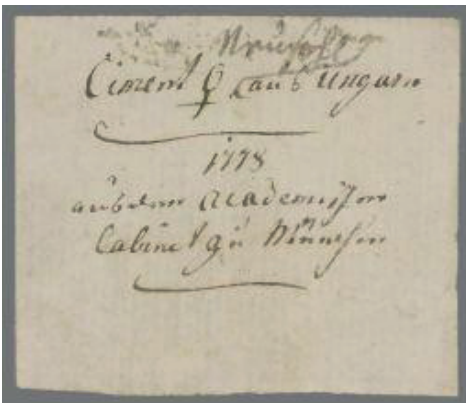 Neusohl
Ciment ♀ aus Ungarn
1778
aus dem Academischen
Cabinet zu München